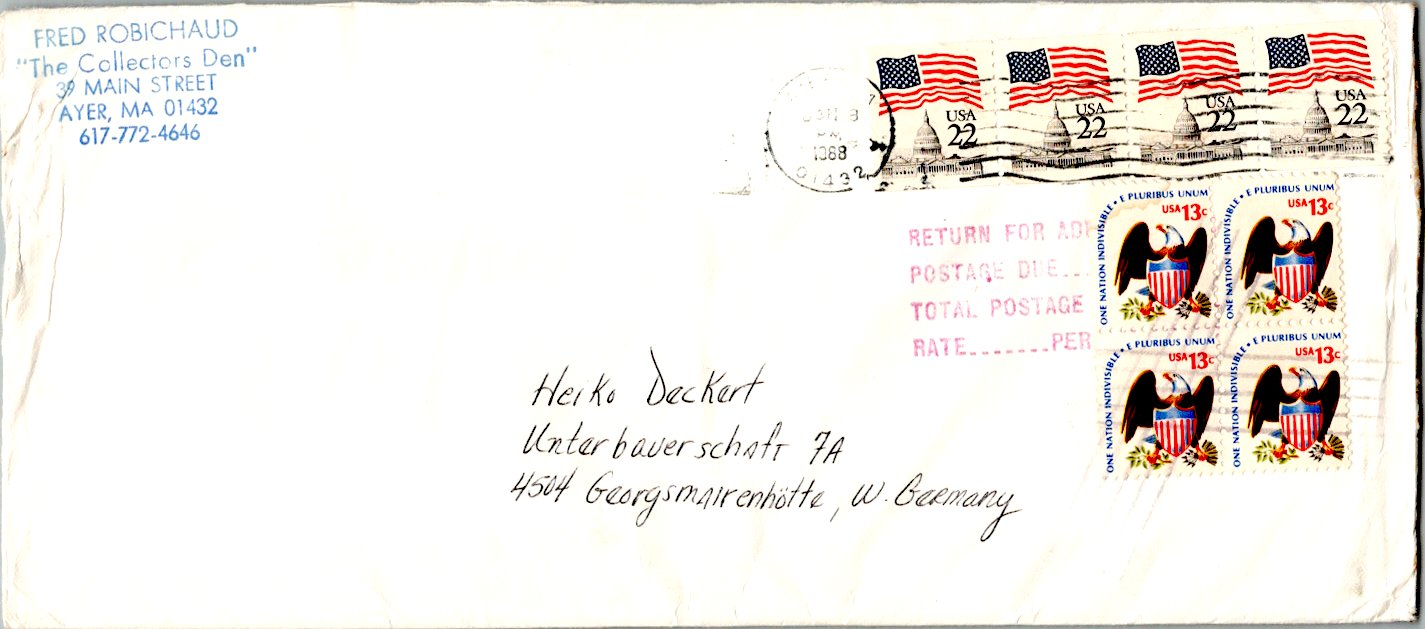 FRED ROBICHAUD
"The Collectors Den"
39 MAIN STREET
AYER, MA 01432
617-772-4646
1988
01432
USA
22
USA
22
USA
22
USA
22
ONE NATION INDIVISIBLE • E PLURIBUS UNUM
USA 13c
ONE NATION INDIVISIBLE • E PLURIBUS UNUM
USA 13c
ONE NATION INDIVISIBLE • E PLURIBUS UNUM
USA 13c
ONE NATION INDIVISIBLE • E PLURIBUS UNUM
USA 13c
RETURN FOR
POSTAGE DUE...
TOTAL POSTAGE
RATE.......PER
Heiko Deckert
Unterbauerschaft 7A
4504 Georgsmairenhötte, W. Germany